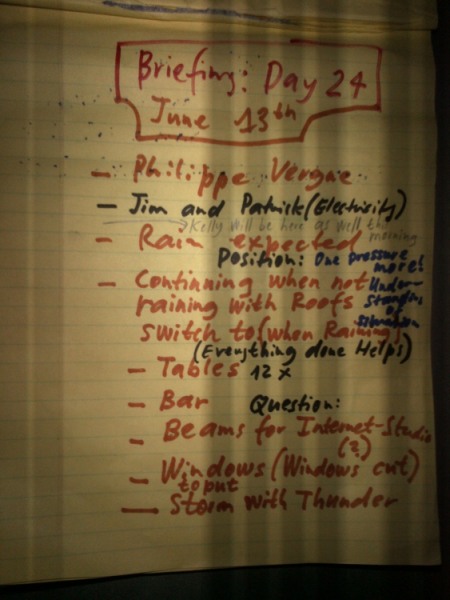 Briefing: Day 24
June 13th
- Philippe Vergne
- Jim and Patrick (Electricity)
Kelly will be here as well this morning
- Rain expected
Position: One pressure more!
- Continuing when not
Understanding of situation
raining with Roofs
switch to (when Raining)
(Everything done Helps)
- Tables 12 x
- Bar Question:
- Beams for Internet-Studio
(?)
- Windows (Windows cut)
to put
- Storm with Thunder